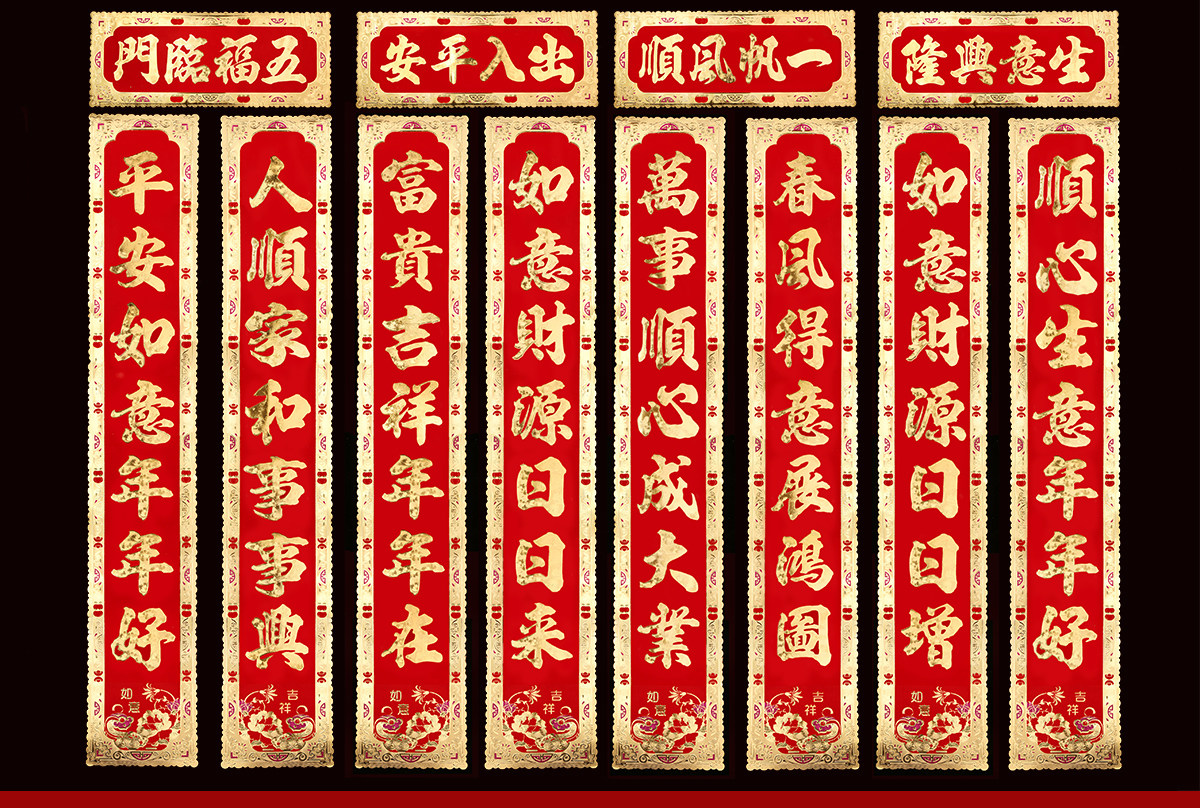 生意興隆
順心生意年年好
吉祥
如意財源日日增
如意
一帆風順
春風得意展鴻圖
吉祥
萬事順心成大業
如意
出入平安
如意財源日日来
吉祥
富貴吉祥年年在
如意
五福臨門
人順家和事事興
吉祥
平安如意年年好
如意